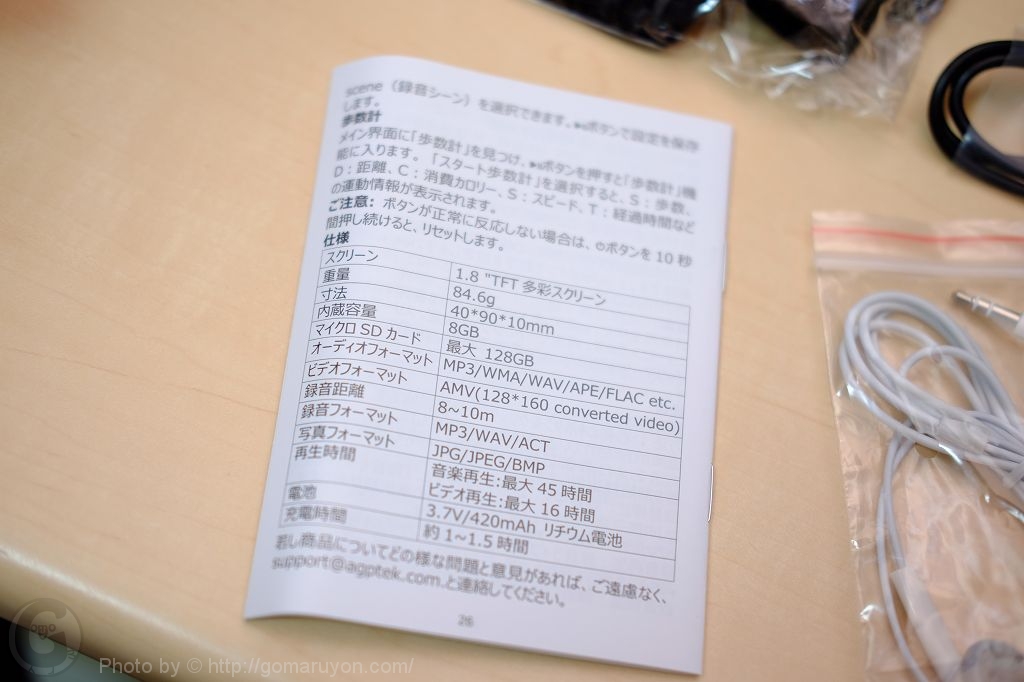 scene（録音シーン）を選択できます。▶ııボタンで設定を保存
します。
歩数計
メイン界面に「歩数計」を見つけ、▶ııボタンを押すと「歩数計」機
能に入ります。「スタート歩数計」を選択すると、S：歩数、
D：距離、C：消費カロリー、S：スピード、T：経過時間など
の運動情報が表示されます。
ご注意：ボタンが正常に反応しない場合は、⏻ボタンを 10 秒
間押し続けると、リセットします。
仕様
スクリーン 1.8 "TFT 多彩スクリーン
重量 84.6g
寸法 40*90*10mm
内蔵容量 8GB
マイクロ SD カード 最大 128GB
オーディオフォーマット MP3/WMA/WAV/APE/FLAC etc.
ビデオフォーマット AMV(128*160 converted video)
録音距離 8~10m
録音フォーマット MP3/WAV/ACT
写真フォーマット JPG/JPEG/BMP
再生時間 音楽再生:最大 45 時間
ビデオ再生:最大 16 時間
電池 3.7V/420mAh リチウム電池
充電時間 約 1~1.5 時間
若し商品についてどの様な問題と意見があれば、ご遠慮なく、
support@agptek.com.と連絡してください。
26
Photo by © http://gomaruyon.com/